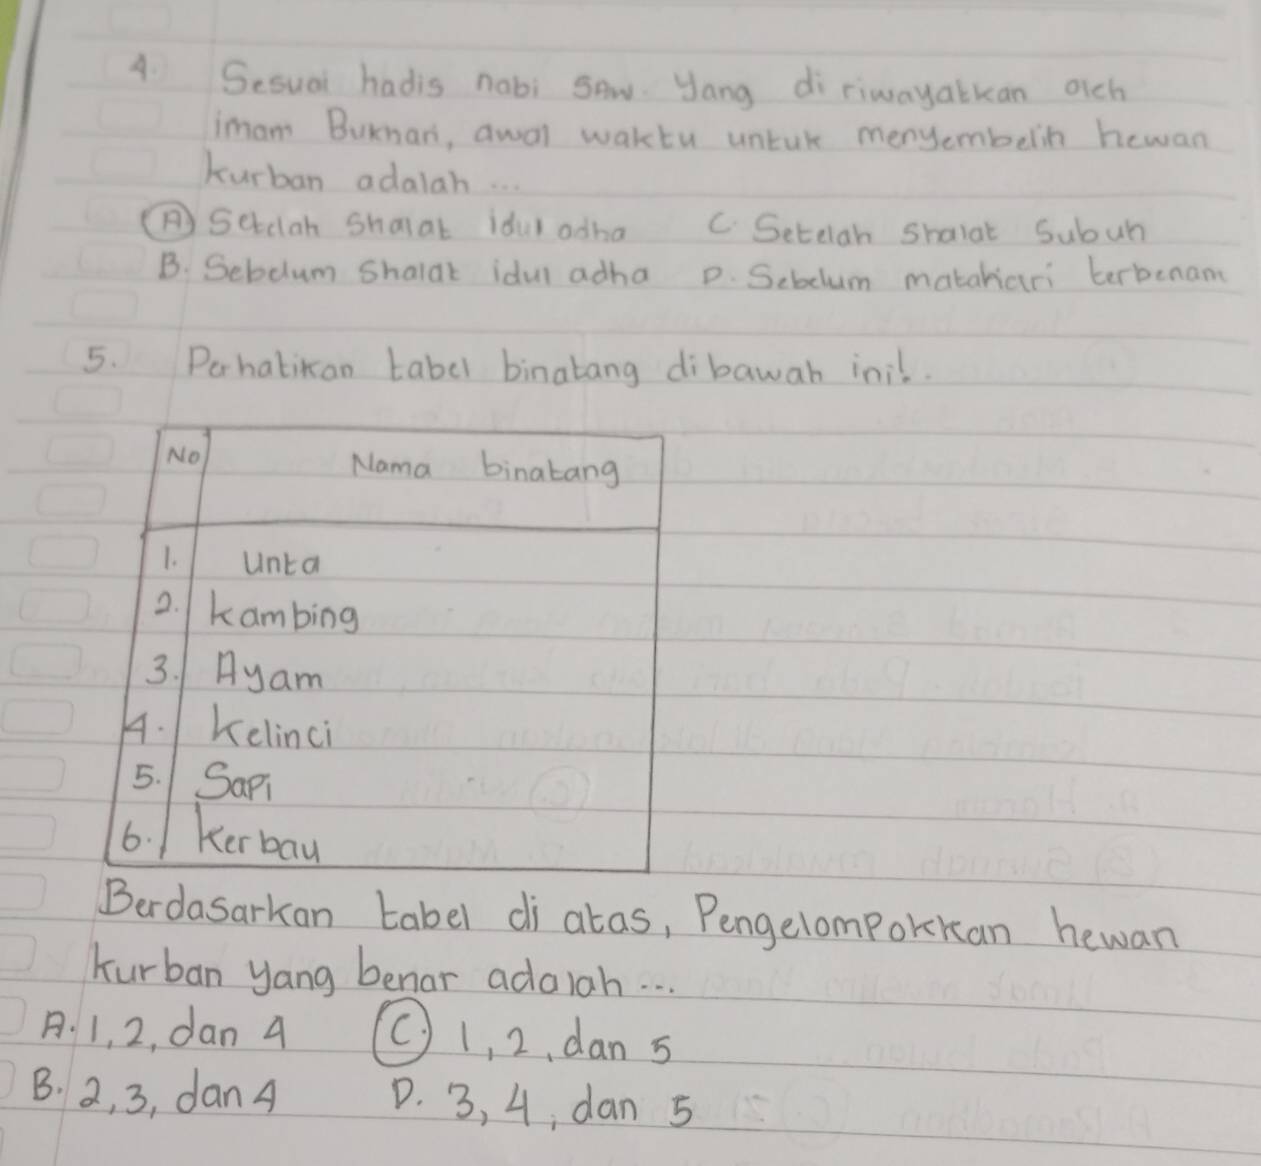 4. Sesuai hadis nabi SAW. yang di riwayatkan oleh
imam Bukhari, awal waktu untuk menyembelih hewan
kurban adalah ...
A Setelah shalat idul adha C. Setelah shalat Subuh
B. Sebelum shalat idul adha D. Sebelum matahari terbenam
5. Perhatikan tabel binatang dibawah ini!.
No Nama binatang
1. Unta
2. Kambing
3. Ayam
4. Kelinci
5. Sapi
6. Kerbau
Berdasarkan tabel di atas, Pengelompokkan hewan
kurban yang benar adalah ...
A. 1, 2, dan 4 C. 1, 2, dan 5
B. 2, 3, dan 4 D. 3, 4, dan 5